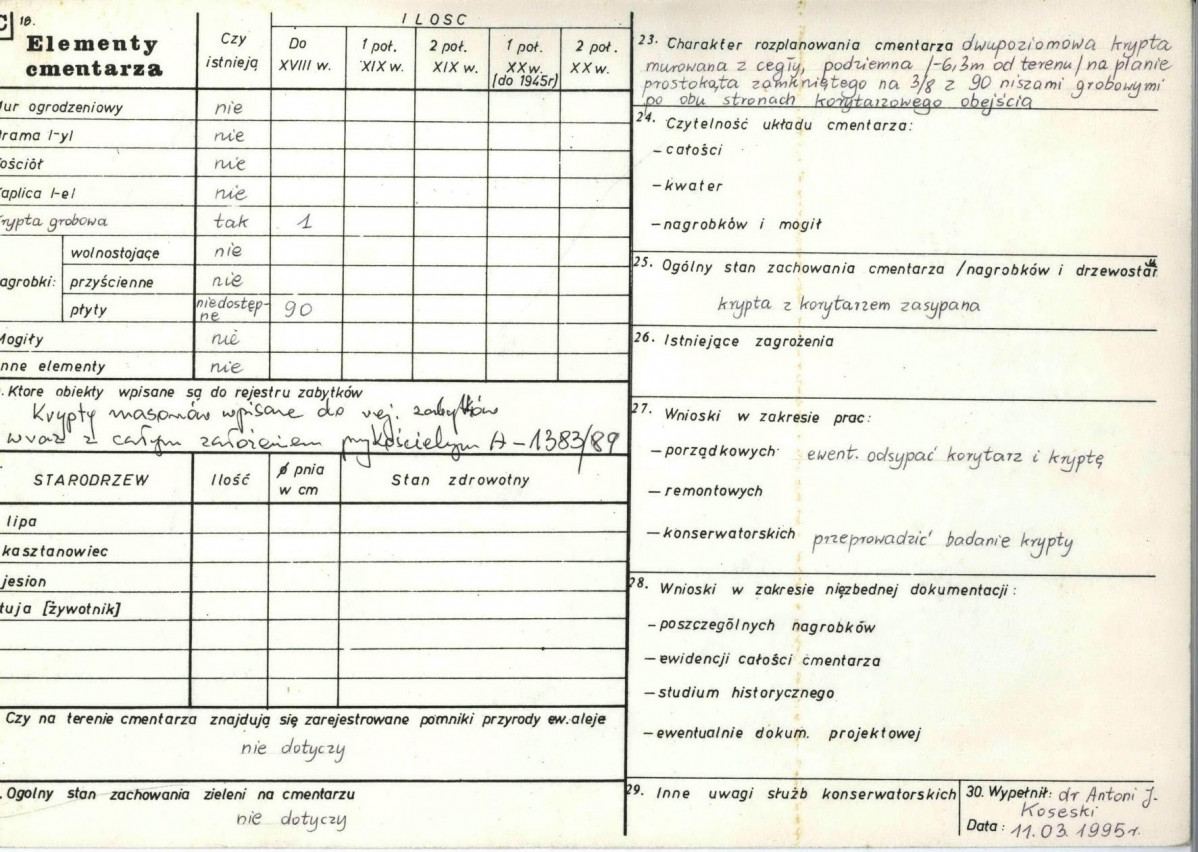 C 18.
Elementy
cmentarza
Czy
istnieją
ILOSC
Do
XVIII w.
1 poł.
XIX w.
2 poł.
XIX w.
1 poł.
XX w.
(do 1945r)
2 poł.
XX w.
ur ogrodzeniowy nie
rama /-y/ nie
ościół nie
aplica /-e/ nie
rypta grobowa tak 1
agrobki: wolnostojące nie
przyścienne nie
płyty niedostęp-
ne 90
ogiły nie
nne elementy nie
. Ktore obiekty wpisane są do rejestru zabytków
Krypty masonów wpisane do rej. zabytków
wraz z całym założeniem przykościelnym A-1383/89
STARODRZEW Ilość ø pnia
w cm Stan zdrowotny
lipa
kasztanowiec
jesion
tuja [żywotnik]
Czy na terenie cmentarza znajdują się zarejestrowane pomniki przyrody ew. aleje
nie dotyczy
. Ogolny stan zachowania zieleni na cmentarzu
nie dotyczy
23. Charakter rozplanowania cmentarza dwupoziomowa krypta
murowana z cegły, podziemna /-6,3m od terenu/ na planie
prostokąta zamkniętego na 3/8 z 90 niszami grobowymi
po obu stronach korytarzowego obejścia
24. Czytelność układu cmentarza:
- całości
- kwater
- nagrobków i mogił
25. Ogólny stan zachowania cmentarza /nagrobków i drzewostan
krypta z korytarzem zasypana
26. Istniejące zagrożenia
27. Wnioski w zakresie prac:
- porządkowych ewent. odsypać korytarz i kryptę
- remontowych
- konserwatorskich przeprowadzić badanie krypty
28. Wnioski w zakresie nięzbednej dokumentacji:
- poszczególnych nagrobków
- ewidencji całości cmentarza
- studium historycznego
- ewentualnie dokum. projektowej
29. Inne uwagi służb konserwatorskich
30. Wypełnił: dr Antoni J.
Koseski
Data: 11.03.1995r.